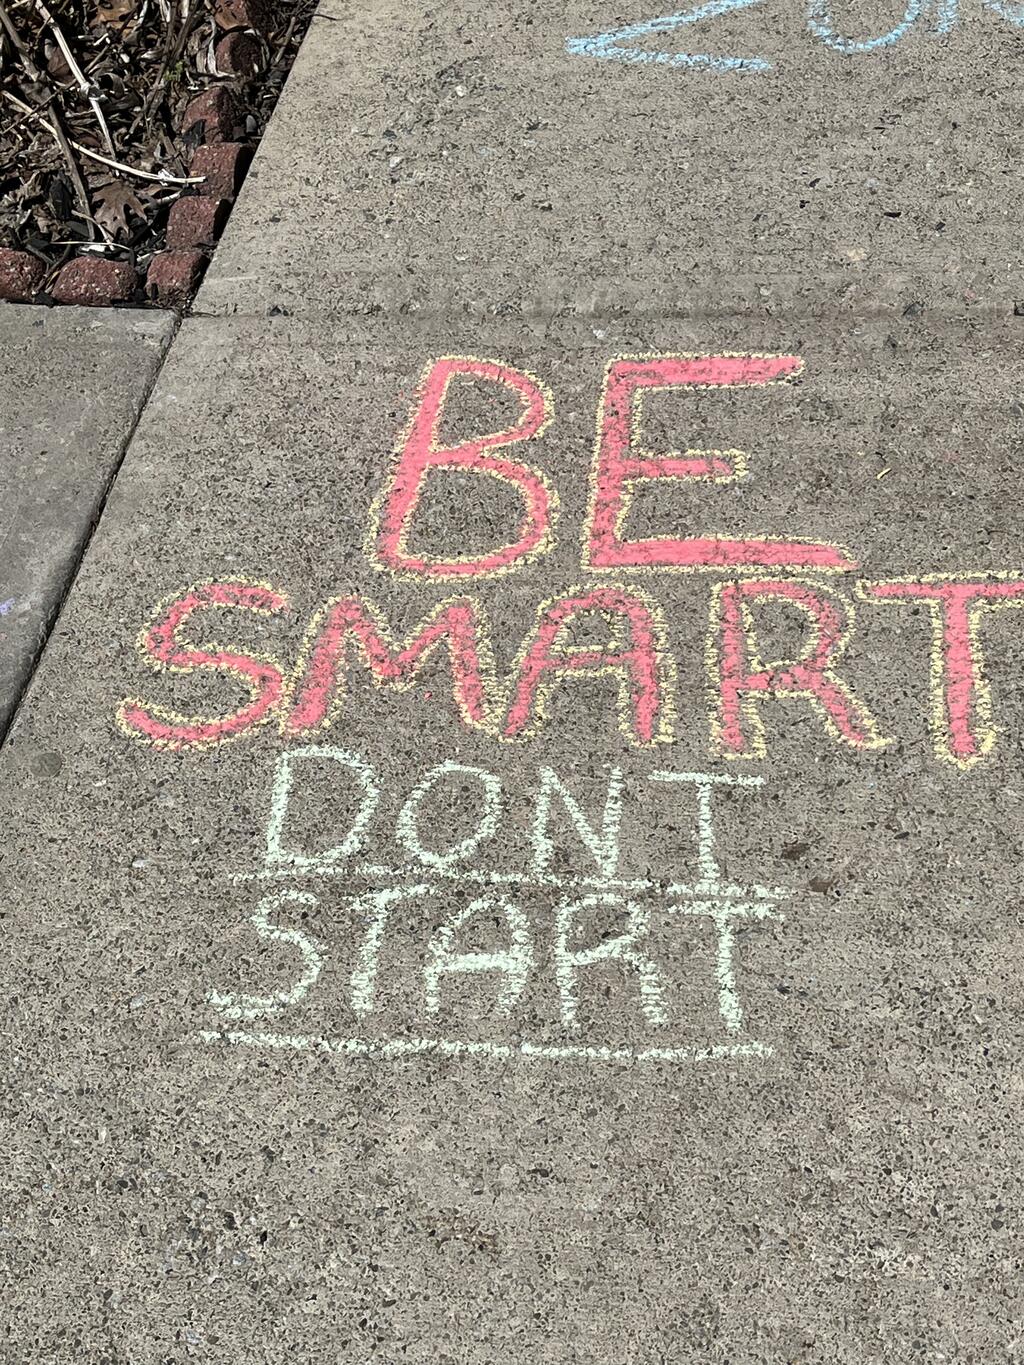 BE
SMART
DONT
START